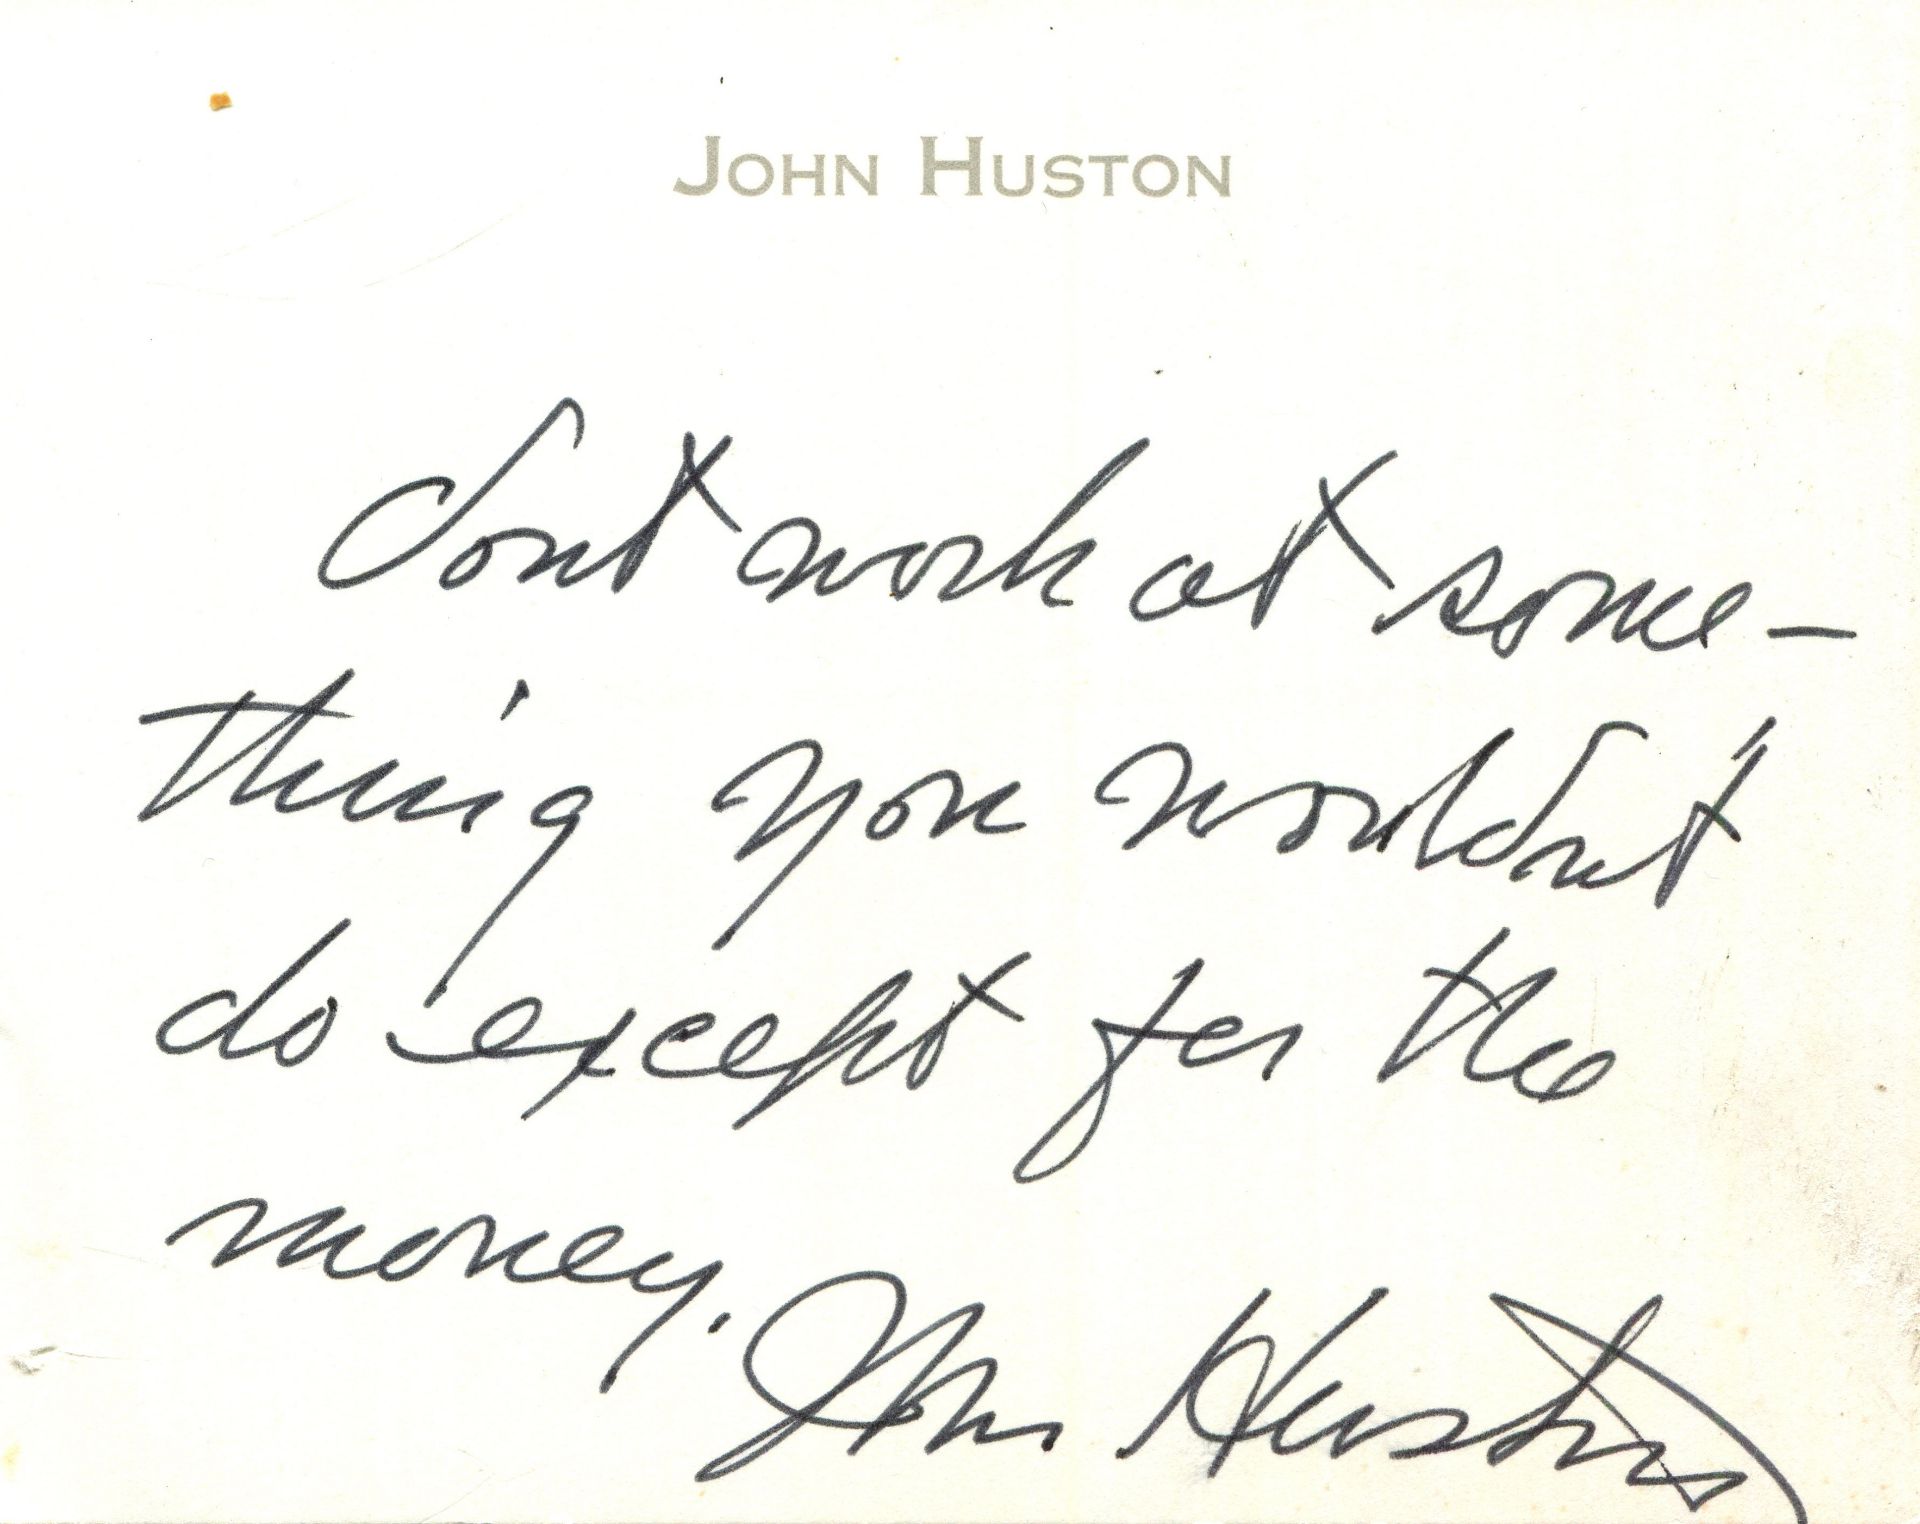 JOHN HUSTON
dont work at some-
thing you wouldn't
do except for the
money.
John Huston